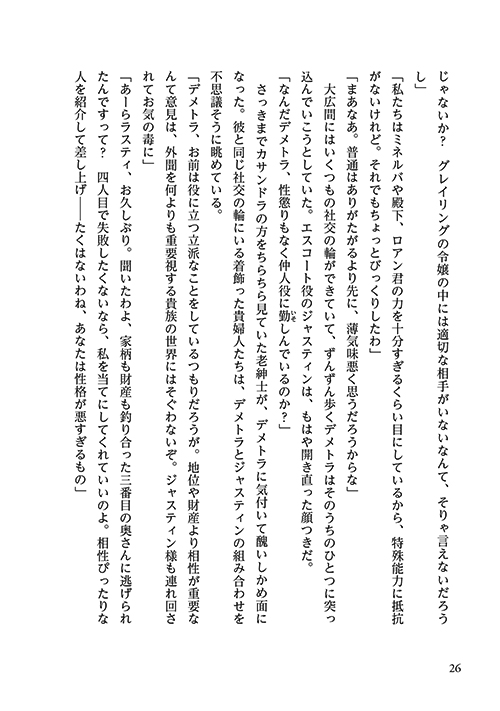 じゃないか？　グレイリングの令嬢の中には適切な相手がいないなんて、そりゃ言えないだろう
し」
「私たちはミネルバや殿下、ロアン君の力を十分すぎるくらい目にしているから、特殊能力に抵抗
がないけれど。それでもちょっとびっくりしたわ」
「まあなあ。普通はありがたがるより先に、薄気味悪く思うだろうからな」
　大広間にはいくつもの社交の輪ができていて、ずんずん歩くデメトラはそのうちのひとつに突っ
込んでいこうとしていた。エスコート役のジャスティンは、もはや開き直った顔つきだ。
「なんだデメトラ、性懲りもなく仲人役に勤しんでいるのか？」
いそ
　さっきまでカサンドラの方をちらちら見ていた老紳士が、デメトラに気付いて醜いしかめ面に
なった。彼と同じ社交の輪にいる着飾った貴婦人たちは、デメトラとジャスティンの組み合わせを
不思議そうに眺めている。
「デメトラ、お前は役に立つ立派なことをしているつもりだろうが。地位や財産より相性が重要な
んて意見は、外聞を何よりも重要視する貴族の世界にはそぐわないぞ。ジャスティン様も連れ回さ
れてお気の毒に」
「あーらラスティ、お久しぶり。聞いたわよ、家柄も財産も釣り合った三番目の奥さんに逃げられ
たんですって？　四人目で失敗したくないなら、私を当てにしてくれていいのよ。相性ぴったりな
人を紹介して差し上げ――たくはないわね、あなたは性格が悪すぎるもの」
26